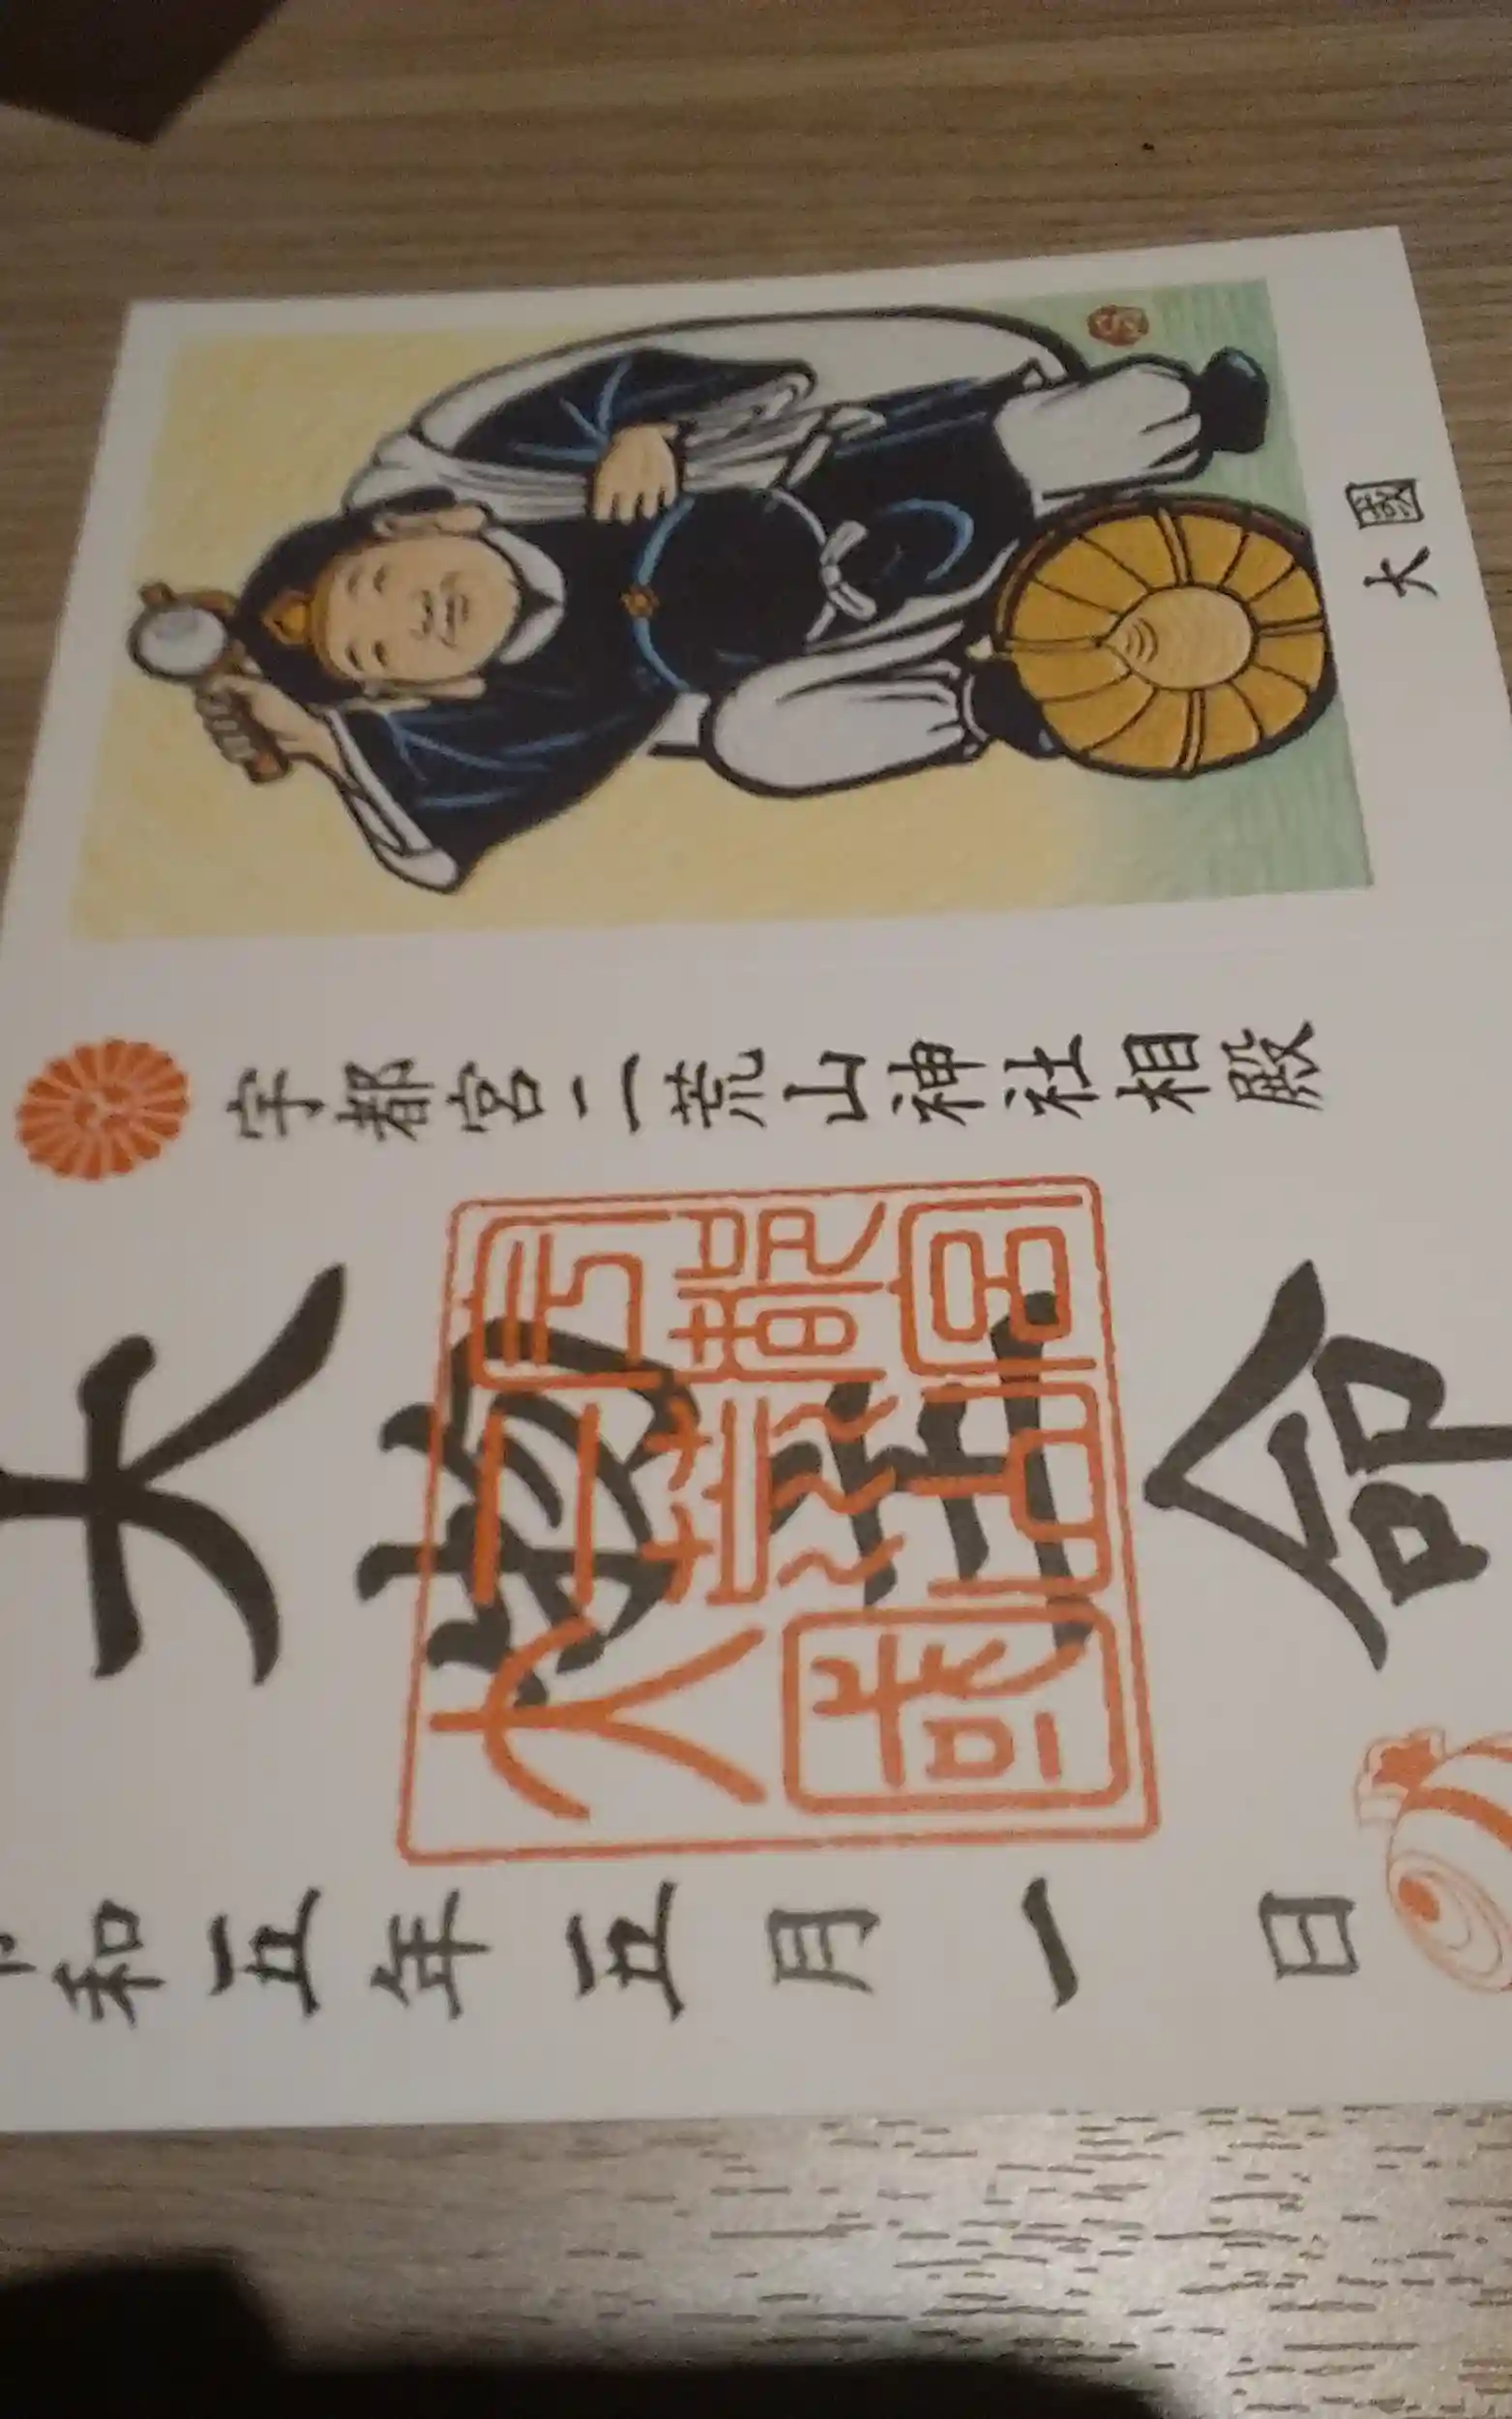 大國
宇都宮二荒山神社相殿
大物主命
宇都宮
二荒山
大國
和五年五月一日